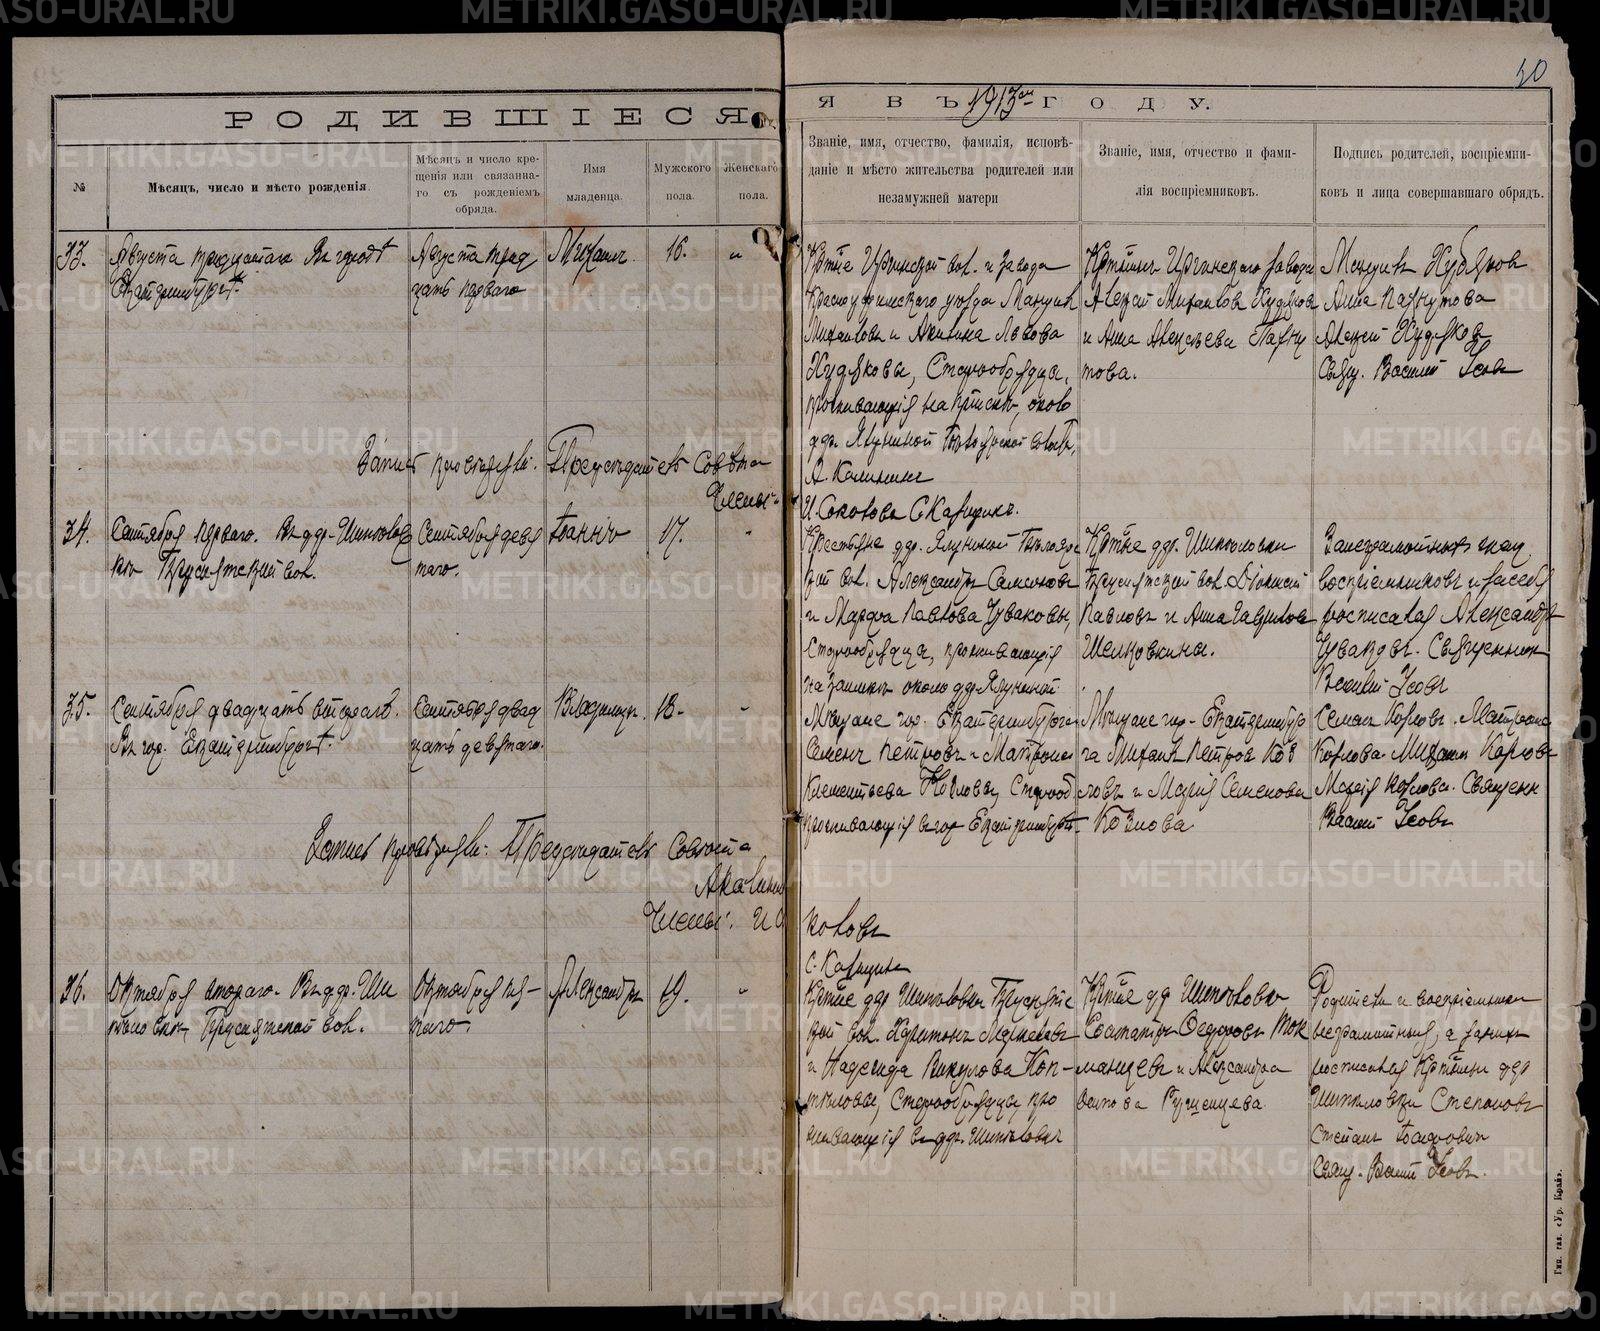 50
РОДИВШІЕСЯ
Я ВЪ 1913ом ГОДУ.
№
Мѣсяцъ, число и мѣсто рожденія.
Мѣсяцъ и число кре-
щенія или связанна-
го съ рожденіемъ
обряда.
Имя
младенца.
Мужского
пола.
Женскаго
пола.
Званіе, имя, отчество, фамилія, исповѣ-
даніе и мѣсто жительства родителей или
незамужней матери
Званіе, имя, отчество и фами-
лія воспріемниковъ.
Подпись родителей, воспріемни-
ковъ и лица совершавшаго обрядъ.
33.
Августа тридцатаго Въ городѣ
Екатеринбургѣ.
Августа трид
цать перваго
Михаилъ
16.
"
Кртне Иргинской вол. и завода
Красноуфимскаго уѣзда
Михаиловъ и Акилина Львова
Худяковы, Старообрядцы,
проживающія на пріискѣ, около
дер. Ялуниной
А. Калининъ
И. Соколовъ С. Кавицинъ.
Кртнинъ Иргинскаго завода
Алексѣй Михаиловъ Худяковъ
и Анна Алексѣева Пафну
това.
Худяковъ
Анна Пафнутова
Алексѣй Худяковъ
Свящ. Василій Усовъ
Запись провѣряли: Предсѣдатель Совѣта
Члены:
34.
Сентября перваго. Въ дер. Шипѣлов
кѣ вол.
Сентября девя
таго.
Іоаннъ
17.
"
Крестьяне дер. Ялуниной
кой вол. Александръ Самсоновъ
и Марфа Павлова Чуваковы,
Старообрядцы, проживающія
на заимкѣ около дер. Ялуниной
Кртне дер. Шипѣловки
вол. Діонисій
Павловъ и Анна Гаврилова
Шелковкины.
воспріемниковъ и за себя
росписался Александръ
Чуваковъ. Священникъ
Василій Усовъ
35.
Сентября двадцать втораго.
Въ гор. Екатеринбургѣ.
Сентября двад
цать девятаго.
Владимиръ.
18.
"
Мѣщане гор. Екатеринбурга
Семенъ Петровъ и Матрона
Клементьева Козловы, Старооб
проживающія въ гор. Екатеринбургѣ
Мѣщане гор. Екатеринбур
га Михаилъ Петровъ Коз
ловъ и Марія Семенова
Козлова
Семенъ Козловъ. Матрона
Козлова Михаилъ Козловъ
Марія Козлова. Священн
Василій Усовъ
Запись провѣряли: Предсѣдатель Совѣта
А. Калинин
Члены: И. Со
коловъ
С. Кавицинъ
36.
Октября втораго. Въ дер. Ши
пѣловкѣ вол.
Октября пя-
таго
Александръ
19.
"
Кртне дер Шипѣловки
кой вол. Харитонъ
и Надежда Викулова Коп-
тѣловы, Старообрядцы про
живающія въ дер. Шипѣловкѣ
Кртне дер Шипѣловки
Федоровъ Ток
манцевъ и Александра
Осипова
Родители и воспріемники
неграмотныя, а за нихъ
росписался Кртнинъ дер
Шипѣловки Степановъ
Степанъ
Свящ. Васил Усовъ.
Тип. газ. «Ур. Край».
METRIKI.GASO-URAL.RU